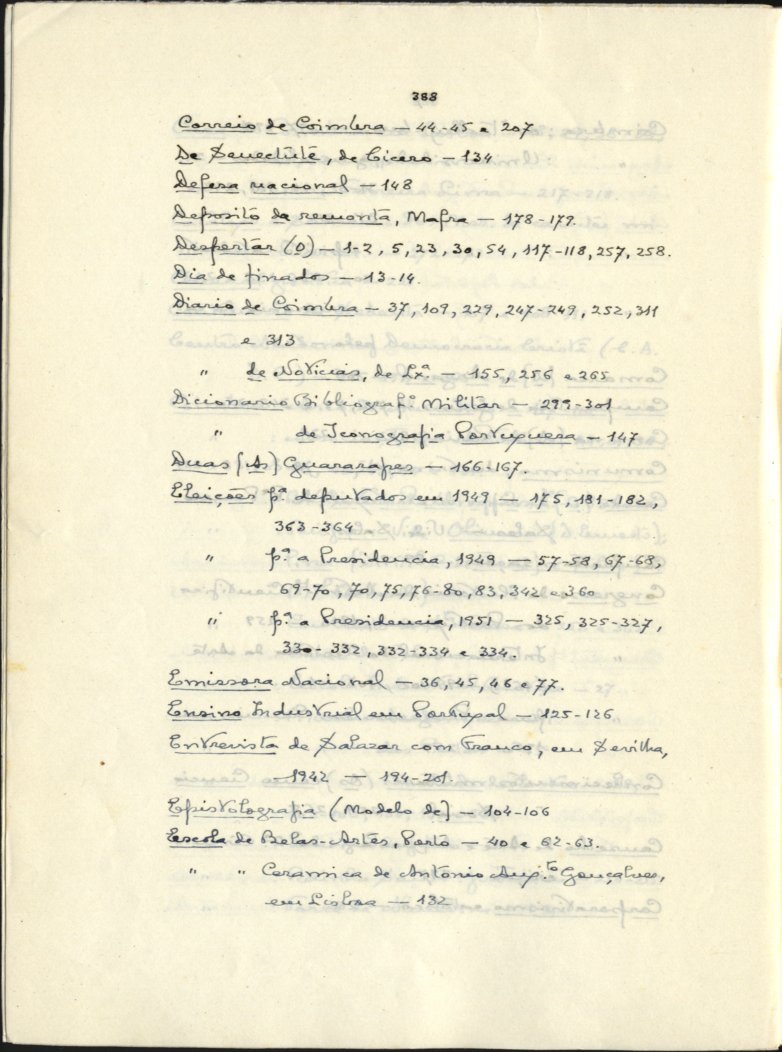 388
Correio de Coimbra — 44-45 e 207
De Senectute, de Cicero — 134
Defesa nacional — 148
Deposito da remonta, Mafra — 178-179.
Despertar (O) — 1-2, 5, 23, 30, 54, 117-118, 257, 258.
Dia de finados — 13-14.
Diario de Coimbra — 37, 109, 229, 247-249, 252, 311
e 313
" de Noticias, de Lxª. — 155, 256 e 265
Dicionario Bibliografº. Militar — 299-301
" de Iconografia Portuguesa — 147
Duas (As) Guararapes — 166-167.
Eleições pª. deputados em 1949 — 175, 181-182,
363-364
" pª. a Presidencia, 1949 — 57-58, 67-68,
69-70, 70, 75, 76-80, 83, 342 e 360
" pª. a Presidencia, 1951 — 325, 325-327,
330-332, 332-334 e 334.
Emissora Nacional — 36, 45, 46 e 77.
Ensino Industrial em Portugal — 125-126
Entrevista de Salazar com Franco, em Sevilha,
-1942 — 194-201.
Epistolografia (Modelo de) — 104-106
Escola de Belas-Artes, Porto — 40 e 62-63.
" " Ceramica de Antonio Augto. Gonçalves,
em Lisboa — 132